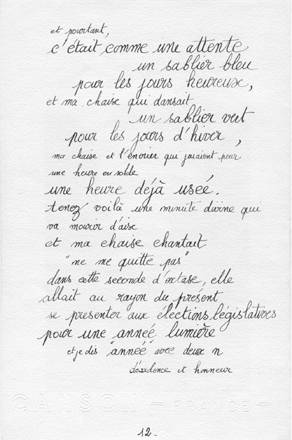 et pourtant,
c'était comme une attente
un sablier bleu
pour les jours heureux,
et ma chaise qui dansait
un sablier vert
pour les jours d'hiver,
ma chaise et l'envrier qui jouaient pour
une heure ou solde
une heure déjà usée.
tenez voilà une minute divine que
va mourir d'aise
et ma chaise chantait
"ne me quitte pas"
dans cette seconde d'extase, elle
allait au rayon du présent
se presenter aux élections législatives
pour une année lumière
et je dis année avec deux n
décadence et honneur
12.